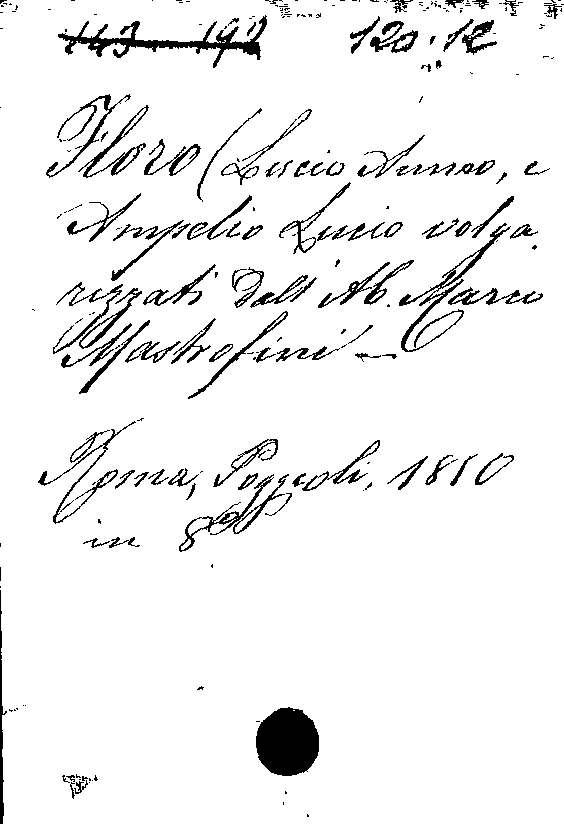 143 192 120.12
Floro (Lucio Anneo, e
Ampelio Lucio volga
rizzati dall'Ab. Marco
Mastrofini —
Roma, Poggioli, 1810
in 8º